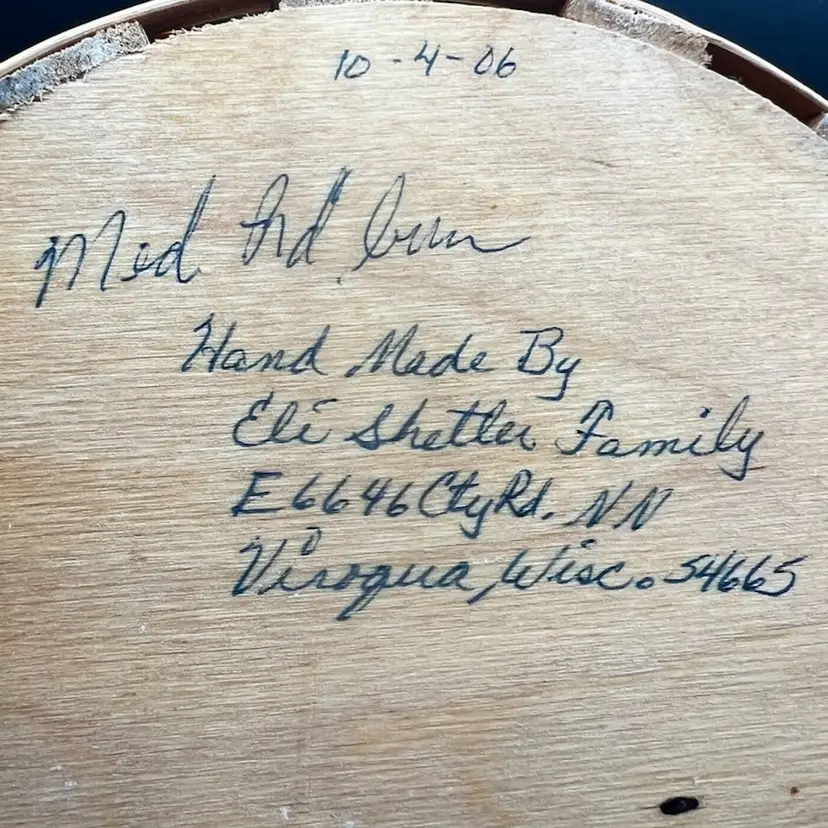 10-4-06
Med
Hand Made By
Eli Shetler Family
E6646 Cty Rd. NN
Viroqua, Wisc. 54665